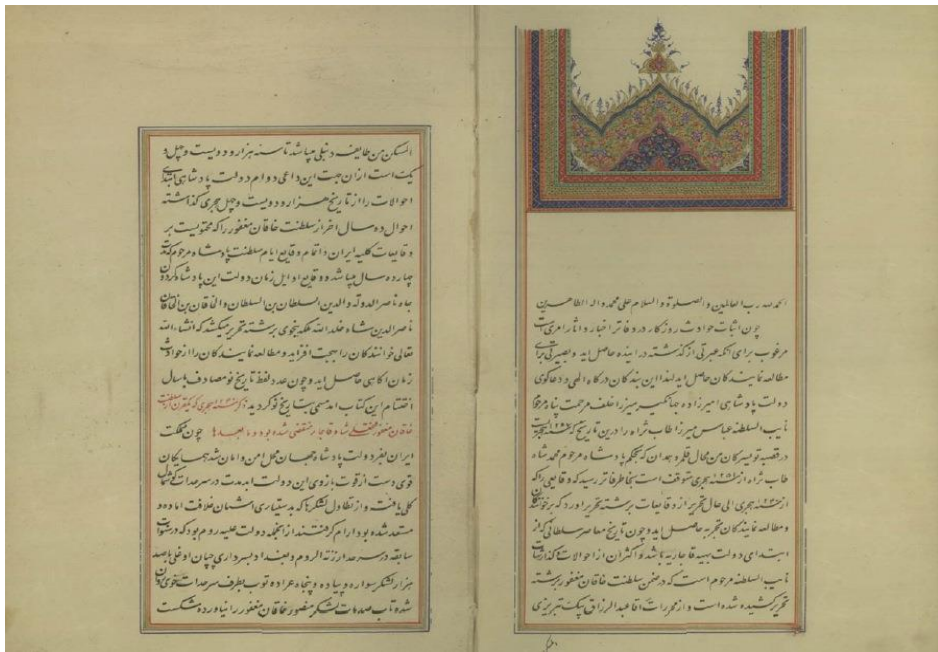 الحمد لله رب العالمین والصلوة والسلام علی محمد واله الطاهرین
چون اثبات حوادث روزکار در دفاتر اخبار و اثار امریست
مرغوب برای انکه عبرتی از کذشته در اینده حاصل اید و بصیرتی برای
مطالعه نمایندکان حاصل اید لهذا این بنده کان درکاه الهی و دعاکوی
دولت پادشاهی امیرزاده جهانکیر میرزا خلف مرحمت پناه مرحوم
نایب السلطنه عباس میرزا طاب ثراه را درین تاریخ که سنه هجریست
در قصبه تویسرکان من محال قلمرو همدان که بحکم پادشاه مرحوم محمد شاه
طاب ثراه از هجری متوقف است بخاطر فاتر رسید که وقایعی را که
از هجری الی حال تحریر از وقایعات برشته تحریر اورد که خوانندکان
و مطالعه نمایندکان تجربه حاصل اید و چون تاریخ معاصر سلطانی که از
ابتدای دولت بهیه قاجاریه میباشد و اکثران از احوالات
نایب السلطنه مرحوم است که در ضمن سلطنت خاقان مغفور برشته
تحریر کشیده شده است و از محررات اقا عبدالرزاق بیک تبریزی
المسکن من طایفه دنبلی میباشد تا سنه هزار و دویست و چهل و
یک است از ان جهت این داعی دوام دولت پادشاهی ابتدای
احوالات را از تاریخ هزار و دویست و چهل هجری کذاشته
احوال ده سال اخر از سلطنت خاقان مغفور را که محتویست بر
وقایعات کلیه ایران و اتمام وقایع ایام سلطنت پادشاه مرحوم که مدت
چهارده سال میباشد و وقایع اوایل زمان دولت این پادشاه کردون
جاه ناصر الدوله والدین السلطان بن السلطان والخاقان بن الخاقان
ناصرالدین شاه خلد الله ملکه بنحوی برشته تحریر میکشد که انشاء الله
تعالی خوانندکان را بهجت افزاید و مطالعه نمایندکان را از حوادث
زمان اکاهی حاصل اید و چون عدد لفظ تاریخ نو مصادف با سال
اختتام این کتاب امد مسمی بتاریخ نو کردید ذکر سنه هجری که یکقرن از سلطنت
خاقان مغفور فتحعلی شاه قاجار منقضی شده بود و ما بعدها چون مملکت
ایران بفر دولت پادشاه جهان محل امن و امان شد همسایکان
قوی دست از قوت بازوی این دولت ابد مدت در سرحدات کوشمال
کلی یافتند و از تطاول لشکرها که بدستیاری امنای خلافت اماده و
مستعد شده بود ارام کرفتند از انجمله دولت علیه روم بود که در سنوات
سابقه در سرحد ارزنة الروم و بغداد بسرداری چپان اوغلی با صد
هزار لشکر سواره و پیاده و پنجاه عراده توپ بطرف سرحدات خوی روان
شده تاب صدمات لشکر منصور خاقان مغفور را نیاورده شکست